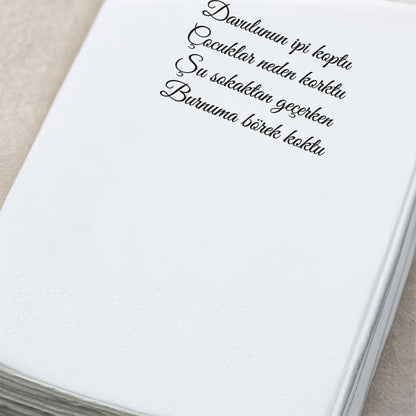 Davulunun ipi koptu
Çocuklar neden korktu
Şu sokaktan geçerken
Burnuma börek koktu